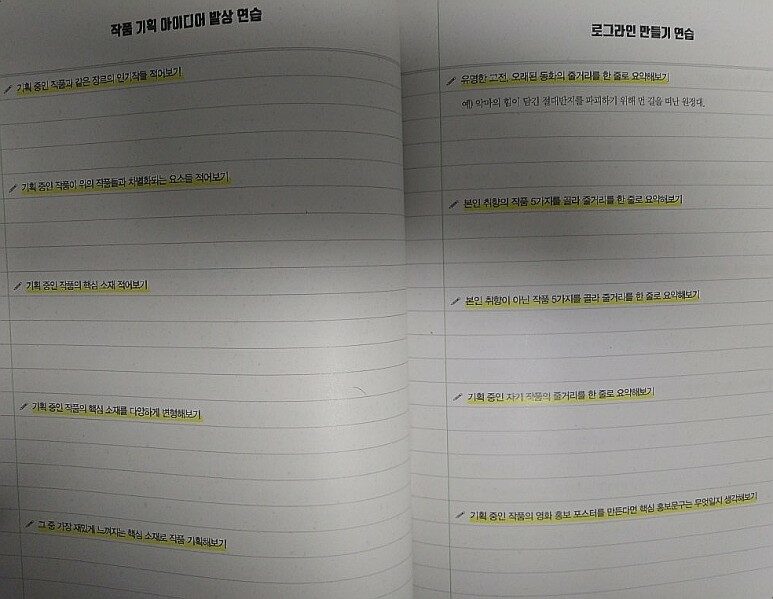 작품 기획 아이디어 발상 연습
기획 중인 작품과 같은 장르의 인기작들 적어보기
기획 중인 작품이 위의 작품들과 차별화되는 요소들 적어보기
기획 중인 작품의 핵심 소재 적어보기
기획 중인 작품의 핵심 소재를 다양하게 변형해보기
그 중 가장 재밌게 느껴지는 핵심 소재로 작품 기획해보기
로그라인 만들기 연습
유명한 고전, 오래된 동화의 줄거리를 한 줄로 요약해보기
예) 악마의 힘이 담긴 절대반지를 파괴하기 위해 먼 길을 떠난 원정대.
본인 취향의 작품 5가지를 골라 줄거리를 한 줄로 요약해보기
본인 취향이 아닌 작품 5가지를 골라 줄거리를 한 줄로 요약해보기
기획 중인 차기 작품의 줄거리를 한 줄로 요약해보기
기획 중인 작품의 영화 홍보 포스터를 만든다면 핵심 홍보문구는 무엇일지 생각해보기